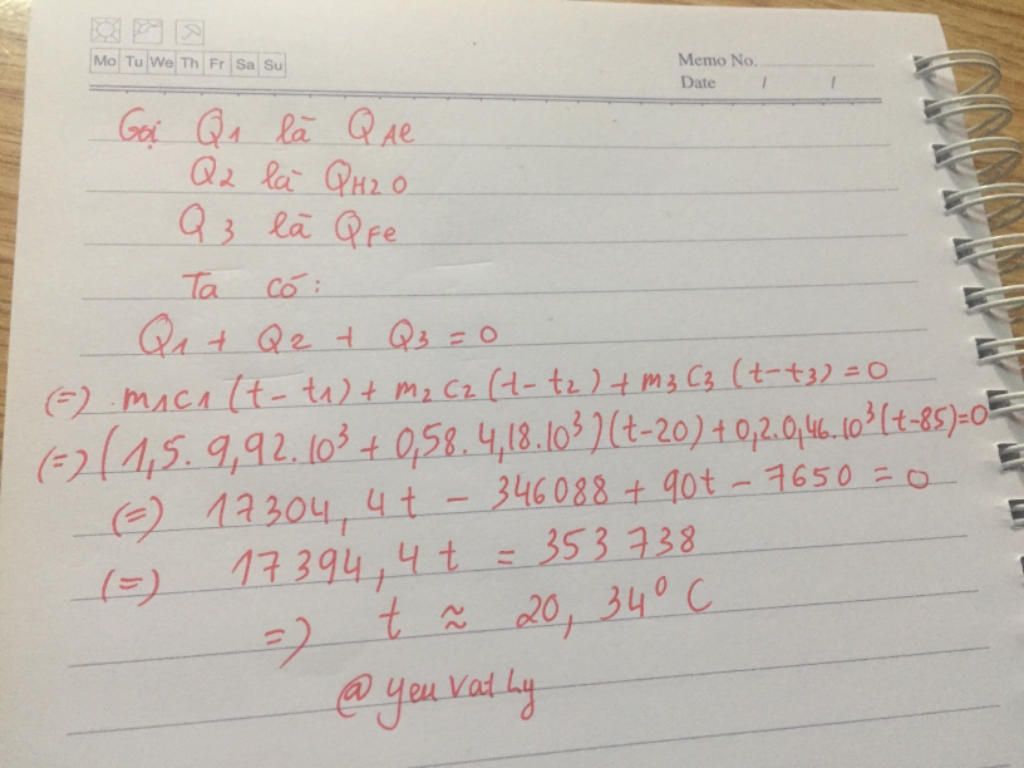 Mo Tu We Th Fr Sa Su
Memo No.
Date / /
Gọi Q1 là QAl
Q2 là QH2O
Q3 là QFe
Ta có:
Q1 + Q2 + Q3 = 0
(=) m1c1 (t - t1) + m2c2 (t - t2) + m3c3 (t - t3) = 0
(=) (1,5. 9,92.10³ + 0,58. 4,18.10³)(t-20) + 0,2.0,46.10³(t-85)=0
(=) 17304,4t - 346088 + 90t - 7650 = 0
(=) 17394,4t = 353738
=) t ≈ 20,34° C
@yeuVatLy